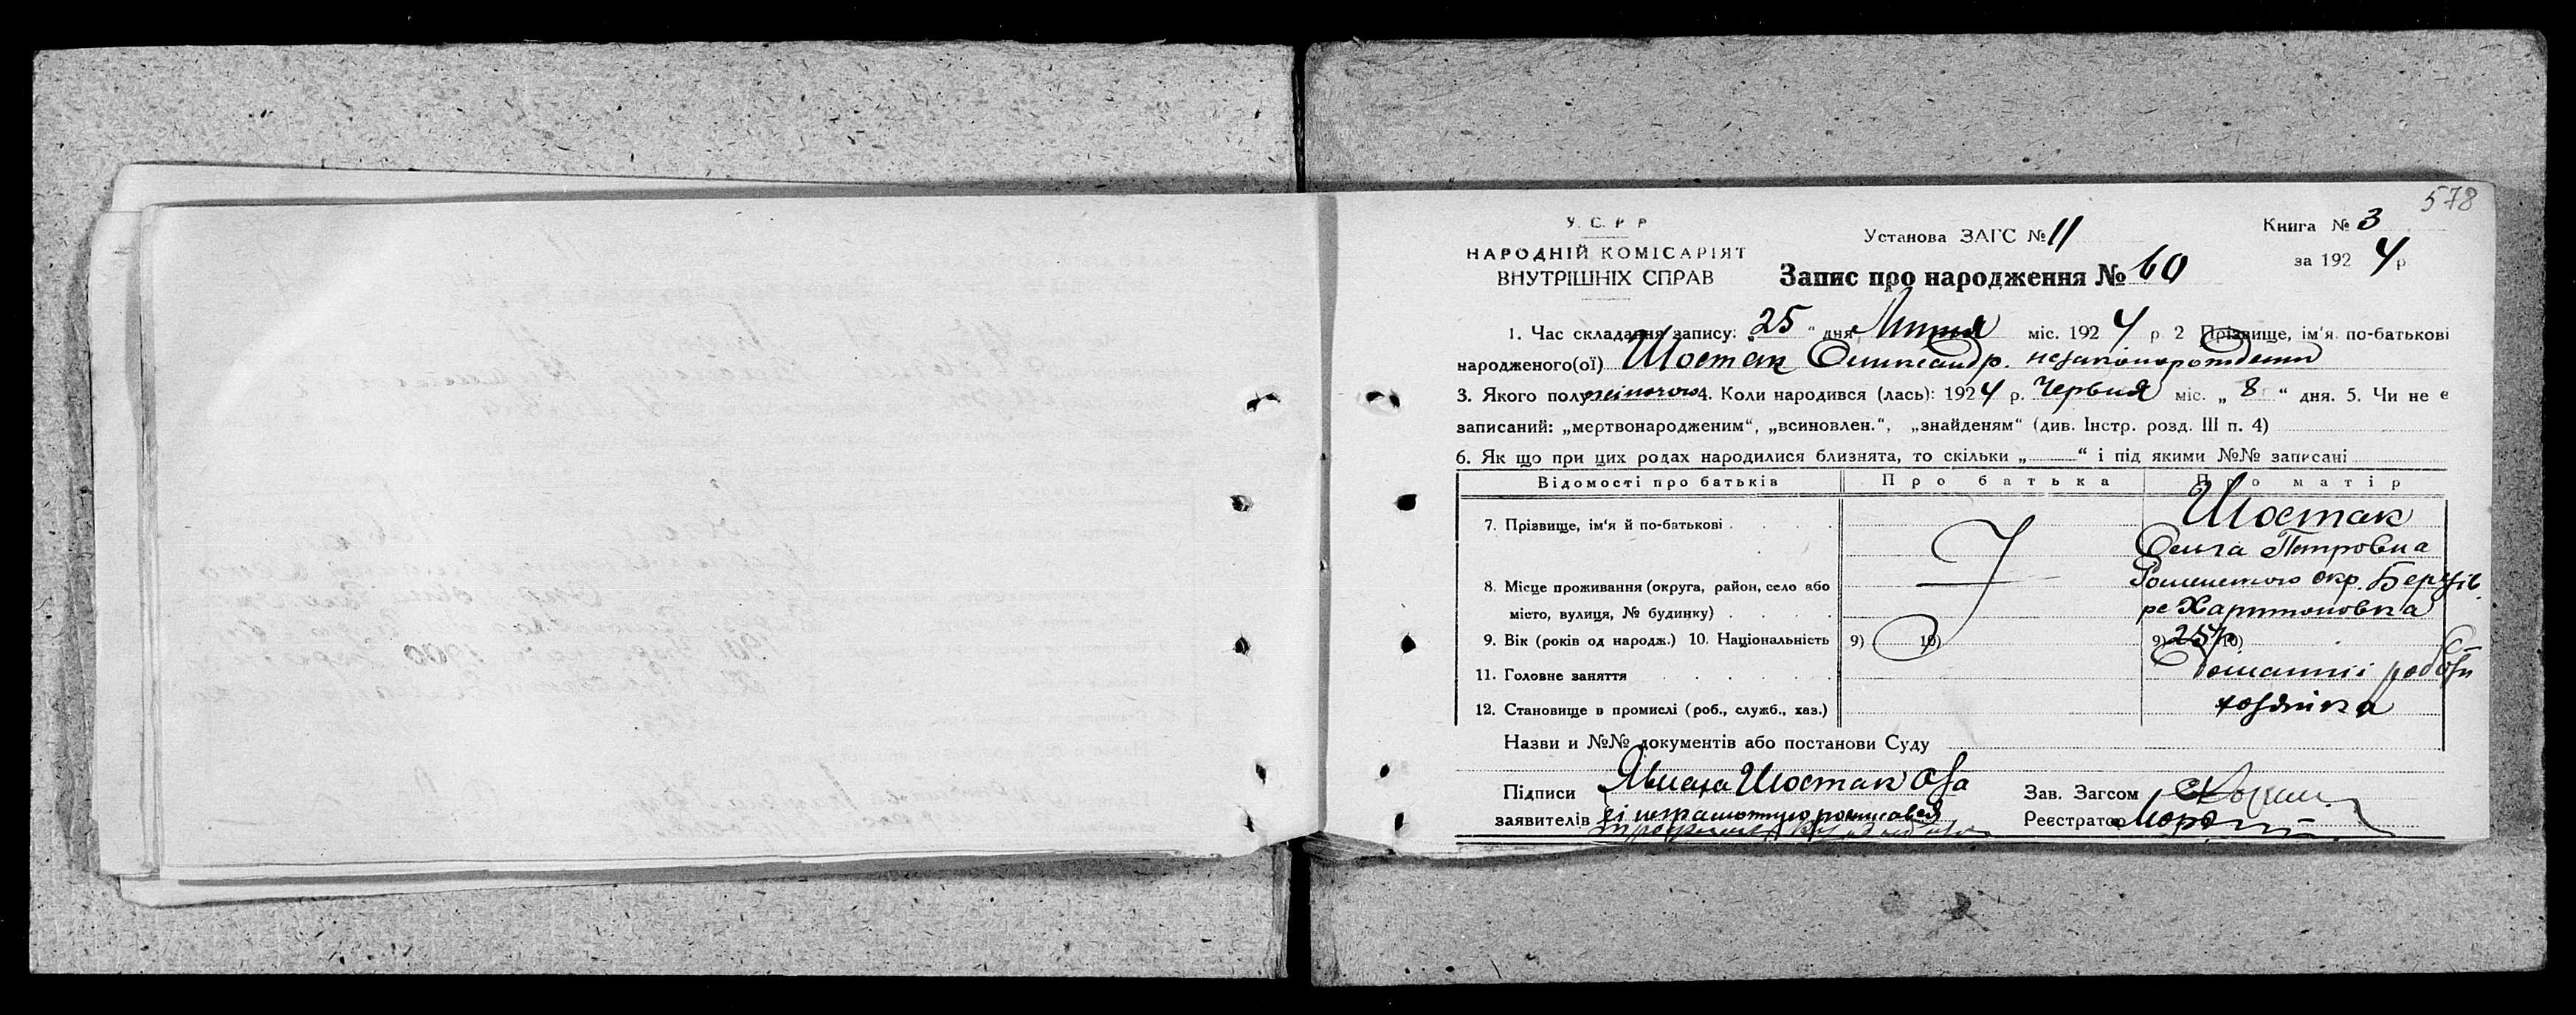 578
У. С. Р Р
НАРОДНІЙ КОМІСАРІЯТ
ВНУТРІШНІХ СПРАВ
Установа ЗАГС № 11
Книга № 3
за 1924 р
Запис про народження № 60
1. Час складання запису: „25“ дня Липня міс. 1924 р 2 Прізвище, ім'я по-батькові
народженого(ої) Шостак Олександр. незаконорождени
3. Якого полу 4. Коли народився (лась): 1924 р. Червня міс. „ 8 “ дня. 5. Чи не є
записаний: „мертвонародженим“, „всиновлен.“, „знайденям“ (див. Інстр. розд. III п. 4)
6. Як що при цих родах народилися близнята, то скільки „ “ і під якими №№ записані
Відомості про батьків Про батька Про матір
7. Прізвище, ім'я й по-батькові Шостак
Ольга Петровна
8. Місце проживання (округа, район, село або Роменського окр.
місто, вулиця, № будинку) Харитоновка
9. Вік (років од народж.) 10. Національність 9) 10) 9) 25 10)
11. Головне заняття Домашнії
12. Становище в промислі (роб., служб., хаз.) хозяїка
Назви и №№ документів або постанови Суду
Підписи Шостак Зав. Загсом
заявителів неграмотную росписався Реєстратор